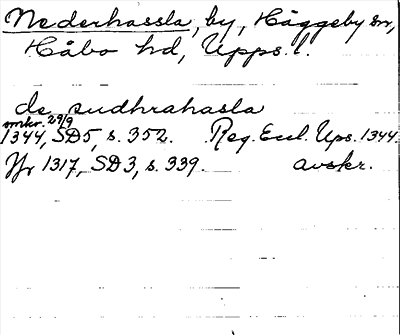 Nederhassla, by, Häggeby sn,
Håbo hd, Upps. l.
de sudhrahasla
omkr. 29/9
1344, SD5, s. 352. Reg. Eccl. Ups. 1344
Jfr 1317, SD3, s. 339. avskr.